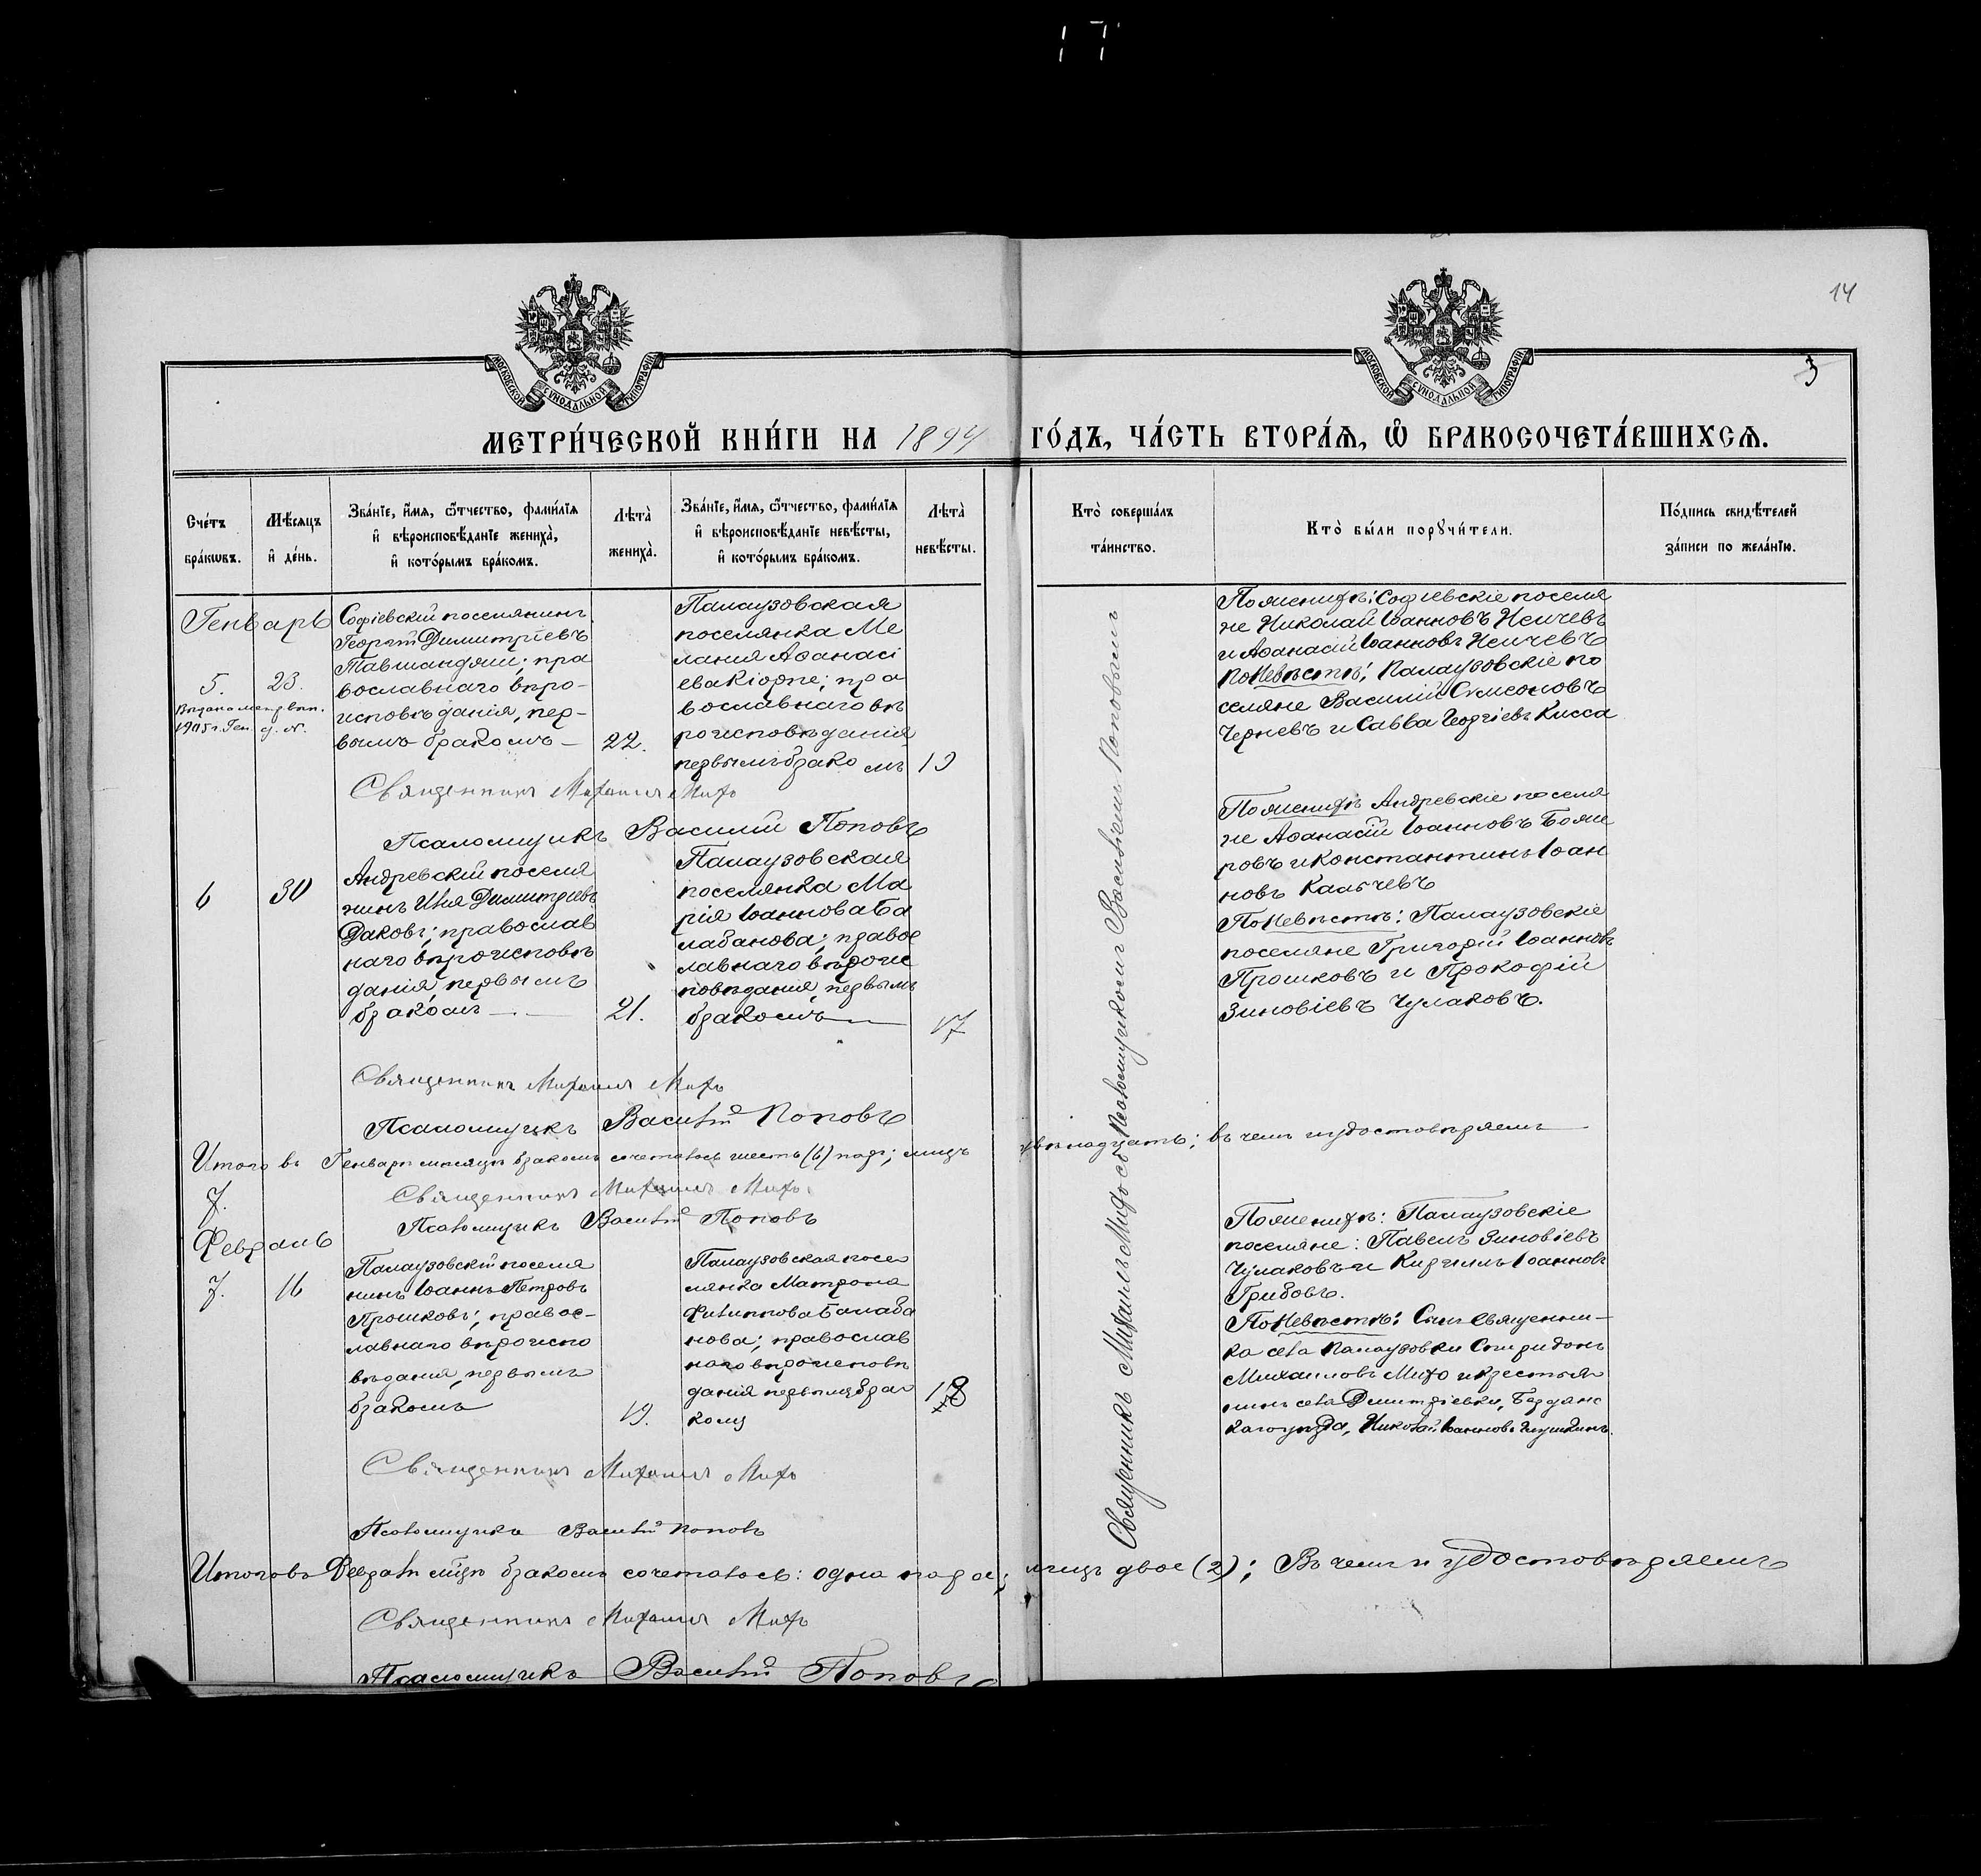 17
14
3
МОСКОВСКОЙ СѴНОДАЛЬНОЙ ТИПОГРАФІИ
МОСКОВСКОЙ СѴНОДАЛЬНОЙ ТИПОГРАФІИ
МЕТРИ́ЧЕСКОЙ КНИ́ГИ НА 1894 ГО́ДЪ, ЧА́СТЬ ВТОРА́Я, Ѽ БРАКОСОЧЕТА́ВШИХСЯ.
Сче́тъ бра́кѡвъ.
Мѣ́сяцъ и҆ де́нь.
Зва́нїе, и҆́мя, ѻ҆́тчество, фами́лїя
и҆ вѣроисповѣ́данїе жениха̀,
и҆ кото́рымъ бра́комъ.
Лѣта̀ жениха̀.
Зва́нїе, и҆́мя, ѻ҆́тчество, фами́лїя
и҆ вѣроисповѣ́данїе невѣ́сты,
и҆ кото́рымъ бра́комъ.
Лѣта̀ невѣ́сты.
Кто̀ соверша́лъ та́инство.
Кто̀ бы́ли порꙋчи́тели.
По́дпись свидѣ́телей
за́писи по жела́нїю.
Генварь
5.
23.
1915 г. Ген.
Софіевскій поселянинъ
Георгій Димитріевъ
Тавшанджи; пра
вославнаго вѣро-
исповѣданія, пер-
вымъ бракомъ
22.
Палаузовская
поселянка Ме
ланія Аѳанасі
ева Кіорпе; пра
вославнаго вѣ
роисповѣданія
первымъ брако мъ
19
По женихѣ: Софіевскіе поселя
не Николай Іоанновъ Нейчевъ
и Аѳанасій Іоанновъ Нейчевъ
По Невѣстѣ: Палаузовскіе по
селяне Василій Симеоновъ
Черневъ и Савва Георгіевъ Кисса
Священникъ Михаилъ Михо
Псаломщикъ Василій Поповъ
6
30
Андревскій поселя
нинъ Илія Димитріевъ
Даковъ; православ
наго вѣроисповѣ
данія, первымъ
бракомъ
21.
Палаузовская
поселянка Ма
рія Іоаннова Ба
лабанова; правос
лавнаго вѣроис
повѣданія, первымъ
бракомъ
17
По женихѣ Андревскіе поселя
не Аѳанасій Іоанновъ Бояже
ровъ и Константинъ Іоан
новъ Калчевъ
По Невѣстѣ: Палаузовскіе
поселяне Григорій Іоанновъ
Прошковъ и Прокофій
Зиновіевъ Чулаковъ.
Священникъ Михаилъ Михо
Псаломщикъ Василій Поповъ
Итого въ Генварѣ мѣсяцѣ бракомъ сочеталось шесть (6) паръ; лицъ двѣнадцать; въ чемъ и удостовѣряемъ
7.
Священникъ Михаилъ Михо
Псаломщикъ Василій Поповъ
Февраль
7.
16
Палаузовскій поселя
нинъ Іоаннъ Петровъ
Прошковъ; правос-
лавнаго вѣроиспо
вѣданія, первымъ
бракомъ
19.
Палаузовская посе
лянка Матрона
Филиппова Балаба
нова; православ
наго вѣроисповѣ
данія первымъ бра
комъ
18
По женихѣ: Палаузовскіе
поселяне: Павелъ Зиновіевъ
Чулаковъ и Кириллъ Іоанновъ
Грибовъ.
По Невѣстѣ: Сынъ Священни-
ка села Палаузовки Спиридонъ
Михаиловъ Михо и крестья
нинъ села Димитріевки, Бердянс
каго уѣзда, Николай Іоанновъ
Священникъ Михаилъ Михо
Псаломщикъ Василій Поповъ
Священникъ Михаилъ Михо съ Псаломщикомъ Василіемъ Поповымъ
Итого въ Февралѣ м͠цѣ бракомъ сочеталось: одна пара; лицъ двое (2); Въ чемъ и удостовѣряемъ
Священникъ Михаилъ Михо
Псаломщикъ Василій Поповъ